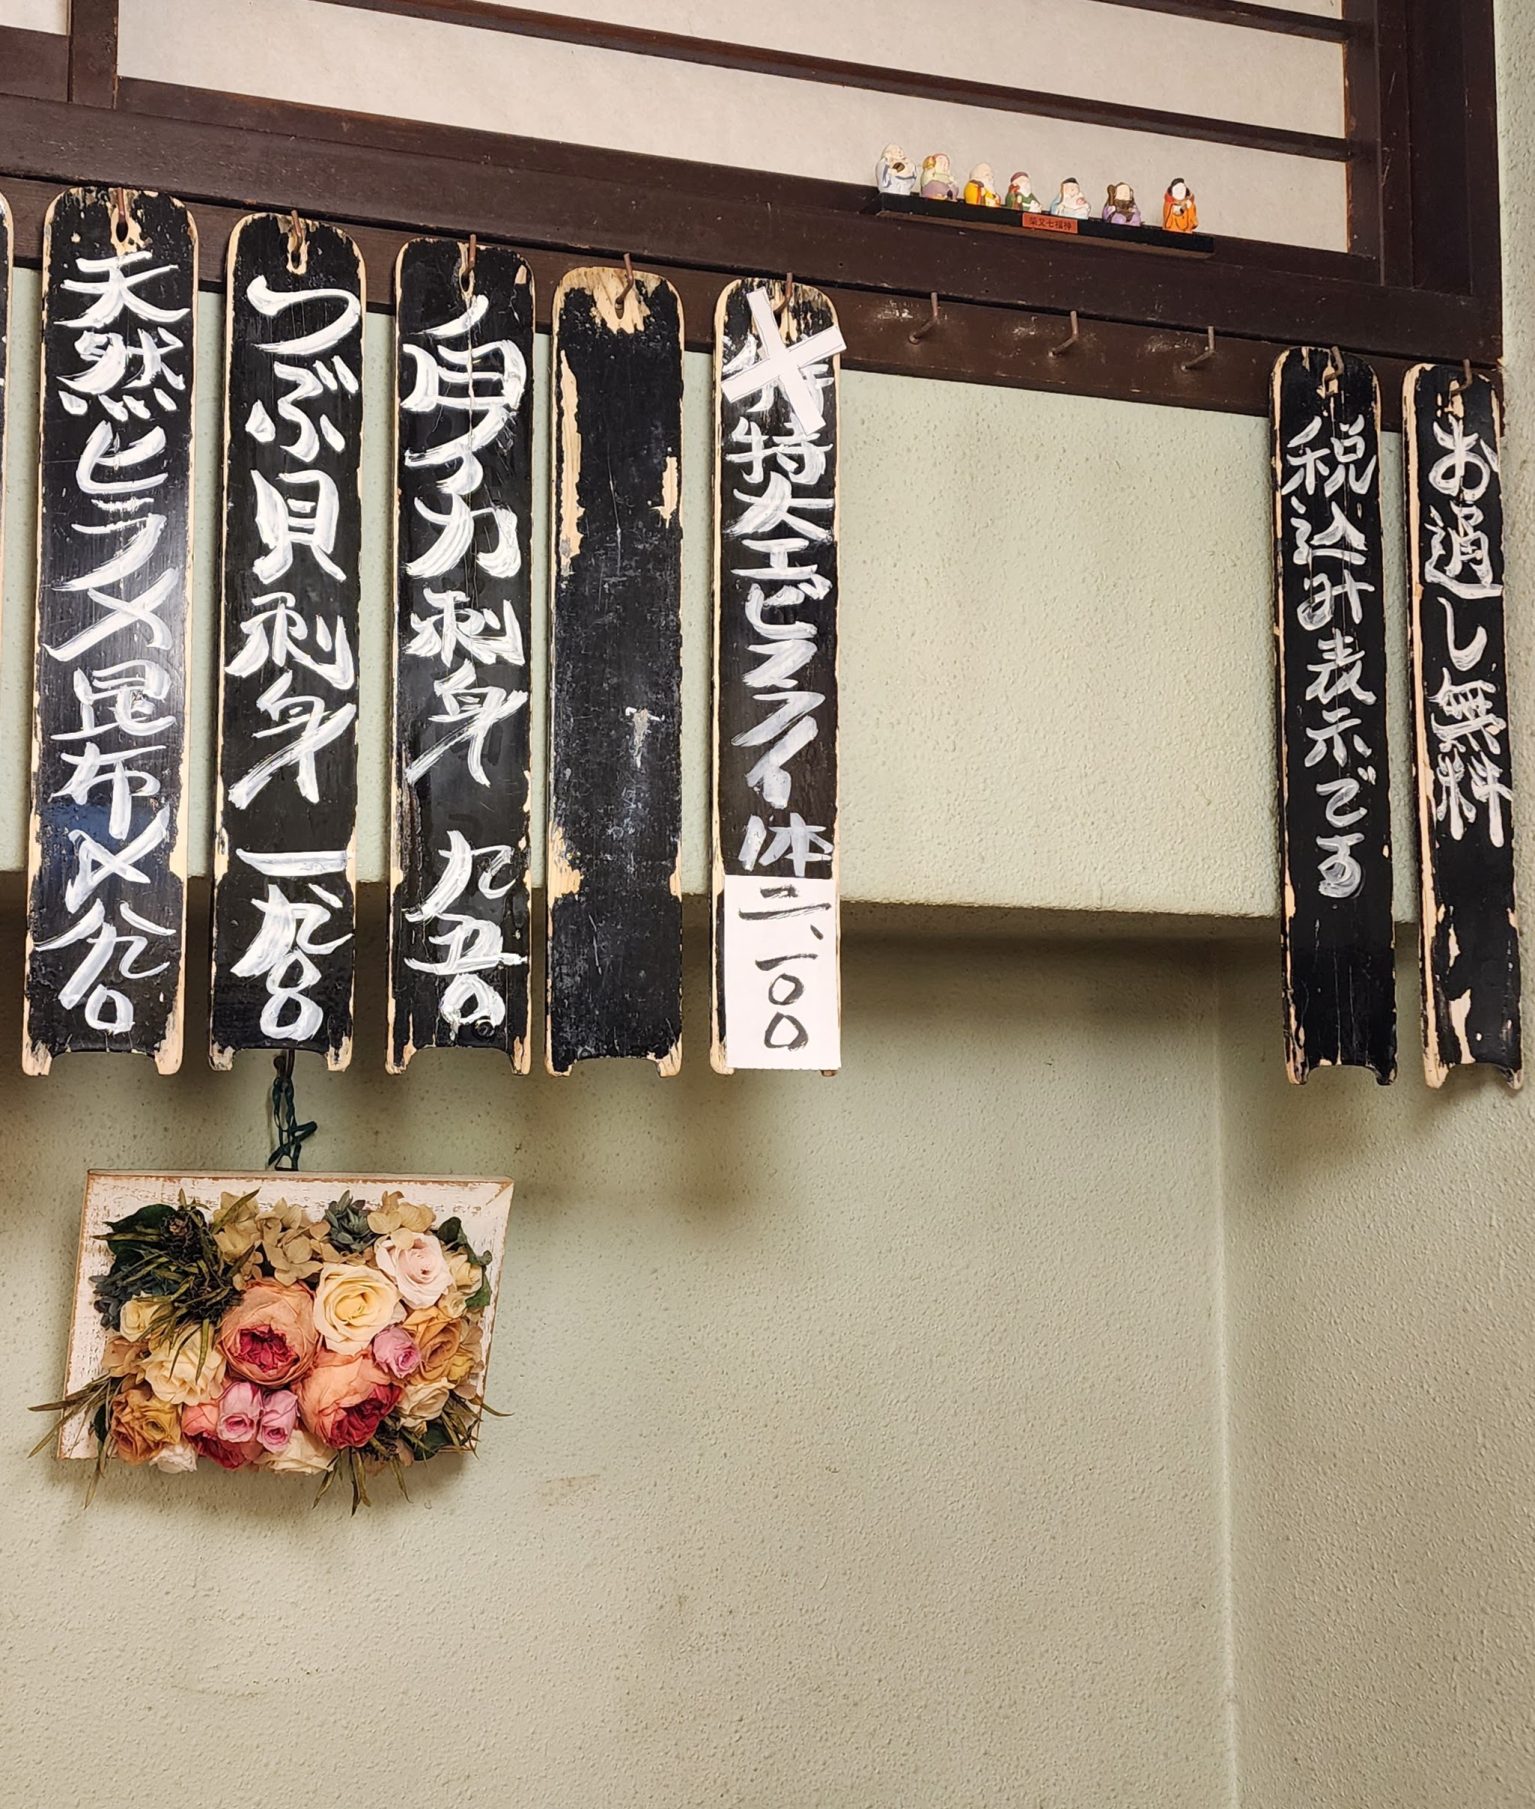 お通し無料
税込み表示です
特大エビフライ一体二、一〇〇
白イカ刺身 九五〇
つぶ貝刺身 一、九〇〇
天然ヒラメ昆布〆 八九〇
柴又七福神